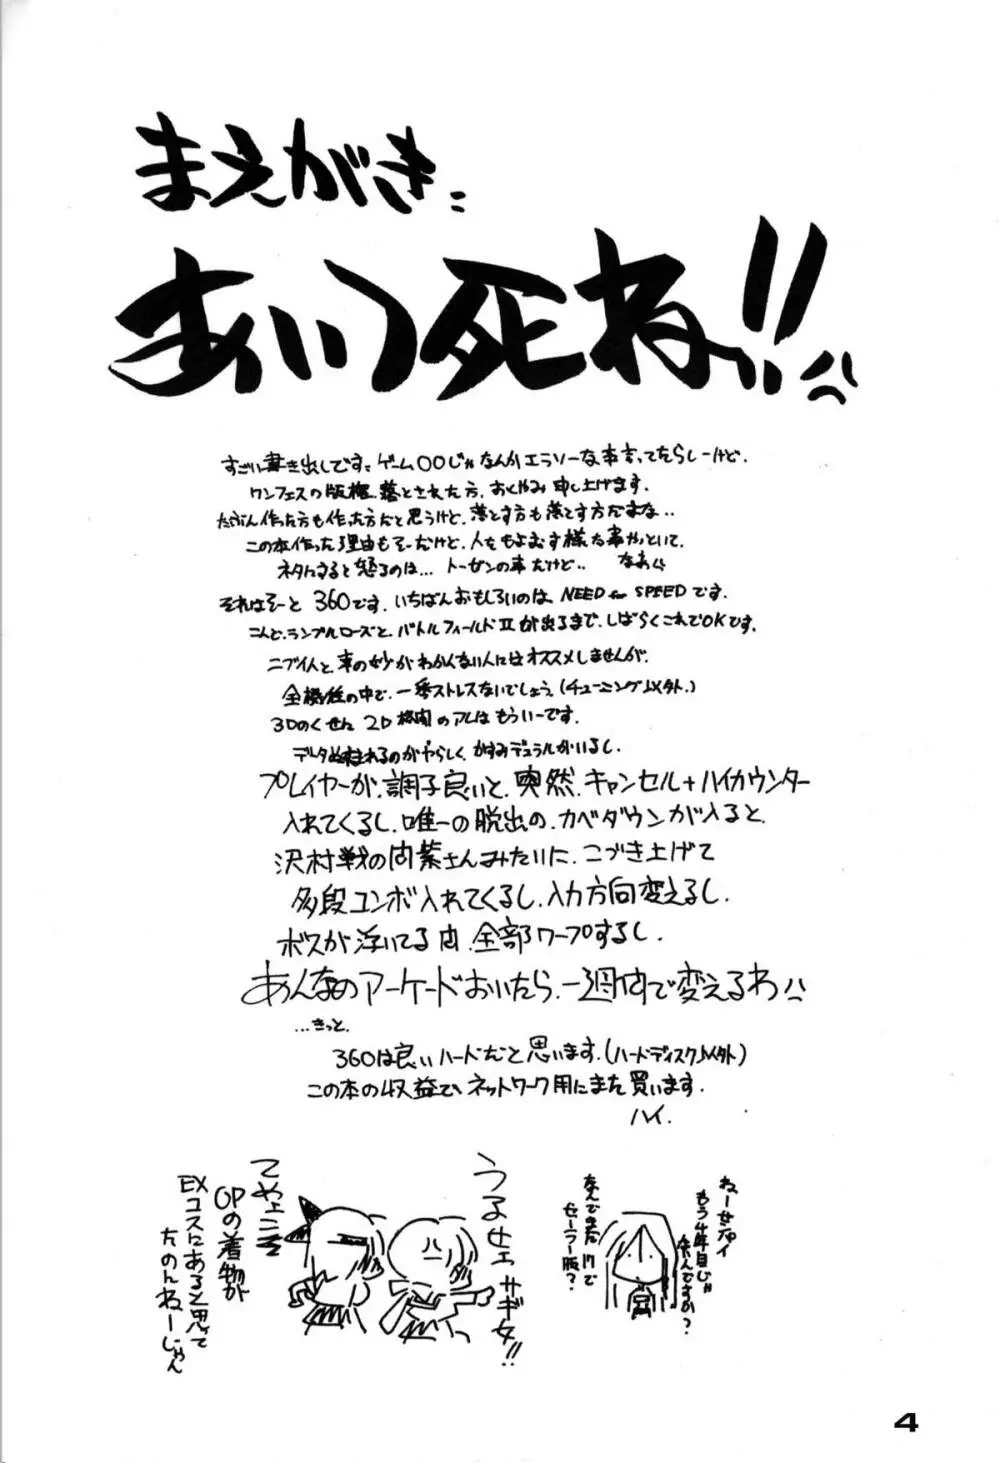 まえがき:
あいつ死ね!!
すごい書き出しです。ゲーム○○じゃなんかエラソーな事言ってたらしーけど、
ワンフェスの版権 落とされた方、おくやみ申し上げます。
たぶん作った方も作った方だと思うけど、落とす方も落とす方だまな..
この本作った理由もそーだけど、人をもよおす様な事やっといて、
ネタにすると怒るのは… トーゼンの事だけど.. なあ
それはそーと 360です。いちばんおもしろいのは、NEED for SPEEDです。
こんど、ランブルローズと、バトルフィールドⅡが出るまで、しばらくこれでOKです。
ニブイ人と、車の妙がわかんない人にはオススメしませんが、
全機種の中で、一番ストレスないでしょう。(チューニング以外。)
3Dのくせに 2D格闘のアレはもういーです。
データぬすまれるのがやらしく、かすみデュラルがいるし、
プレイヤーが、調子良いと、突然、キャンセル+ハイカウンター
入れてくるし、唯一の脱出の、カベダウンが入ると、
沢村戦の向紫さんみたいに、こづき上げて
多段コンボ入れてくるし、入力方向変えるし、
ボスが浮いてる間、全部ワープするし、
あんなのアーケードおいたら、一週間で変えるわ
…きっと、
360は良いハードだと思います。(ハードディスク以外)
この本の収益で、ネットワーク用にまた買います。
ハイ.
ねーせんぱい
もう4年目じゃ
なんでまだ17で
セーラー服?
うるせェサギ女!!
てやェニ
OPの着物が
EXコスにあると思って
たのんねーじゃん
4